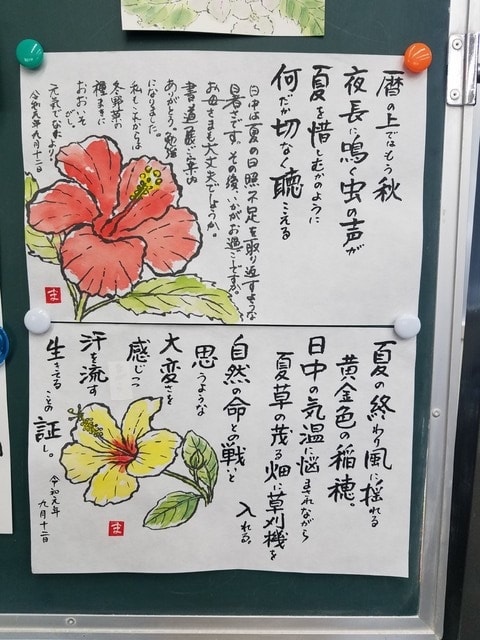 暦の上ではもう秋
夜長に鳴く虫の声が
夏を惜しむかのように
何だか切なく聴こえる
日中は夏の日照不足を取り返すような
暑さです。その後、いかがお過ごですか。
お母さまも大丈夫でしょうか。
書道展ご案内
ありがとう。勉強
になりました。
私もこれからは
冬野菜の
種まきに
おおいそ
元気でなによりです
令和元年九月十二日
ま
夏の終わり風に揺れる
黄金色の稲穂。
日中の気温に悩まされながら
夏草の茂る畑に草刈機を
入れる。
自然の命との戦いと
思うような
大変さを
感じつつ
汗を流す
生きてることの証し。
令和元年
九月十二日
ま